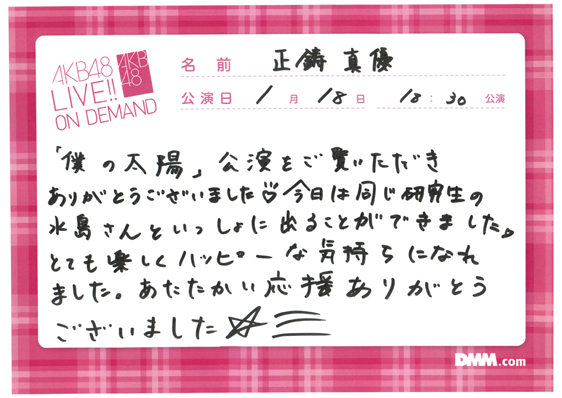 AKB48
LIVE!!
ON DEMAND
AKB
48
名前 正鋳真優
公演日 1月18日 18:30 公演
「僕の太陽」公演をご覧いただき
ありがとうございました♡今日は同じ研究生の
水島さんといっしょに出ることができました。
とても楽しくハッピーな気持ちになれ
ました。あたたかい応援ありがとう
ございました☆
DMM.com